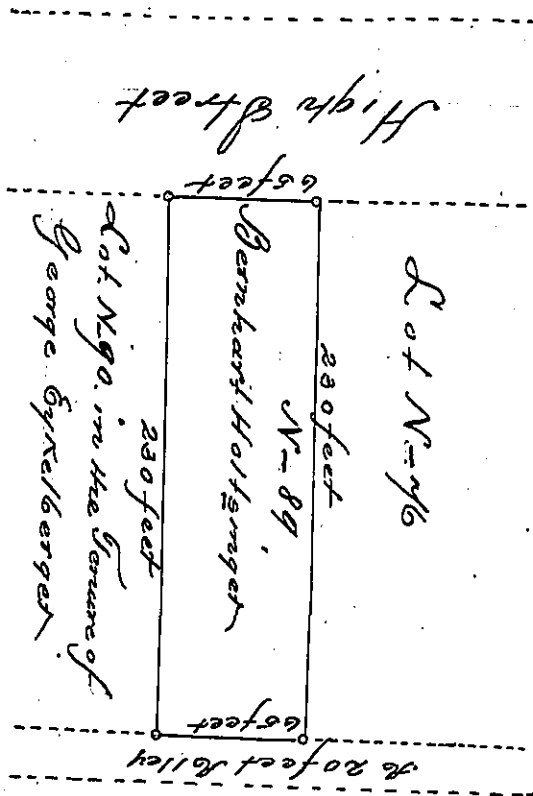 High Street
65 feet
Lot N–76
230 feet
N–89
Bernhart Holtsinger
230 feet
Lot N–90. in the Tenure of
George Eykelberger
65 feet
A 20 feet Alley